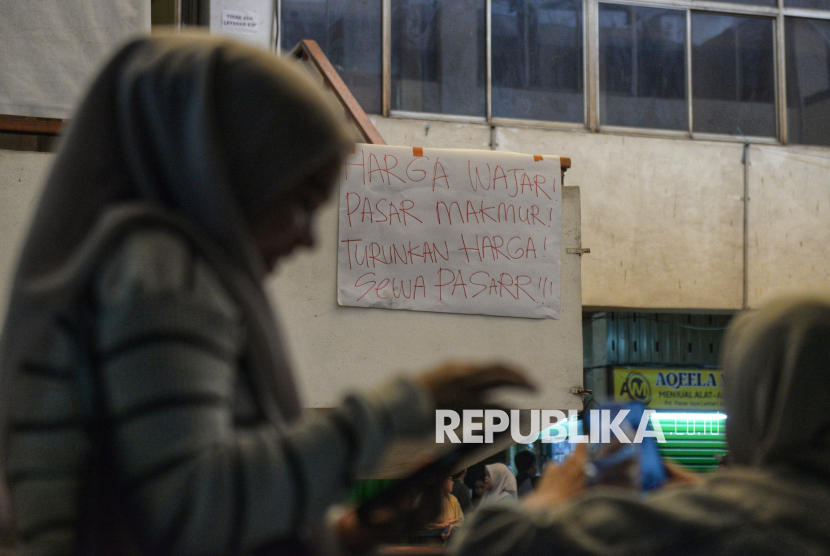 HARGA WAJAR!
PASAR MAKMUR!
TURUNKAN HARGA!
SEWA PASARR!!!
AQEELA
AM
MENJUAL ALAT-A
REPUBLIKA